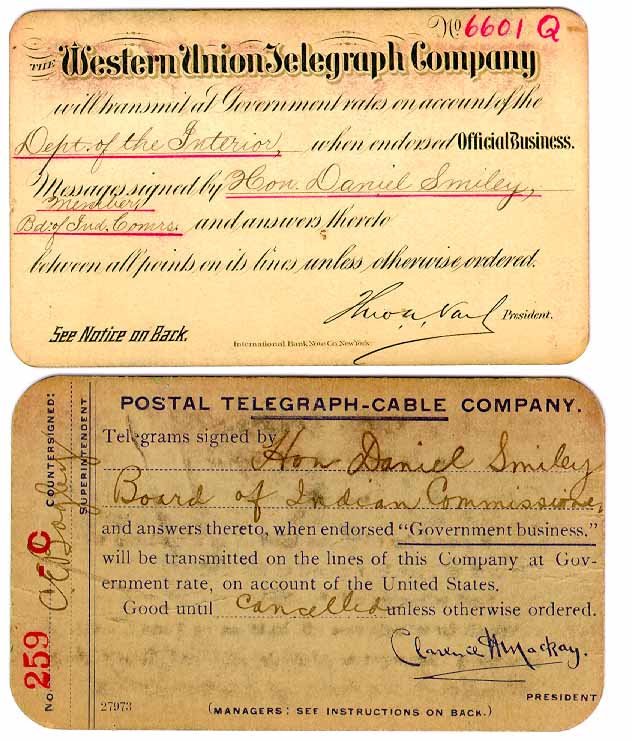 No 6601 Q
THE Western Union Telegraph Company
will transmit at Government rates on account of the
Dept. of the Interior, when endorsed Official Business.
Messages signed by Hon. Daniel Smiley,
Member,
Bd. of Ind. Comrs. and answers thereto
between all points on its lines unless otherwise ordered.
Theo. N. Vail President.
See Notice on Back.
International Bank Note Co. New York
POSTAL TELEGRAPH-CABLE COMPANY.
Telegrams signed by
Hon Daniel Smiley
Board of Indian Commissioner,
and answers thereto, when endorsed "Government business."
will be transmitted on the lines of this Company at Gov-
ernment rate, on account of the United States.
Good until cancelled unless otherwise ordered.
Clarence H Mackay.
PRESIDENT
27973
(MANAGERS: SEE INSTRUCTIONS ON BACK.)
No. 259 C
COUNTERSIGNED:
SUPERINTENDENT